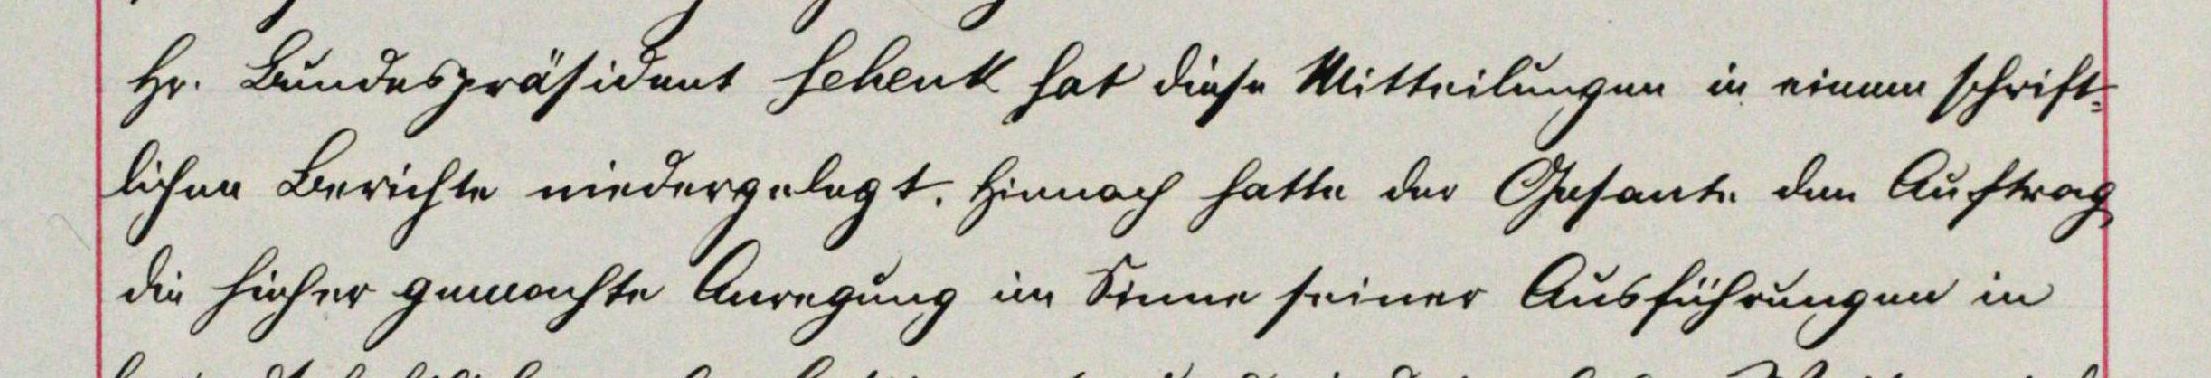 Hr. Bundespräsident Schenk hat diese Mitteilungen in einem schrift=
lichen Berichte niedergelegt. Hienach hatte der Gesante den Auftrag
die hieher gemachte Anregung im Sinne seiner Ausführungen in